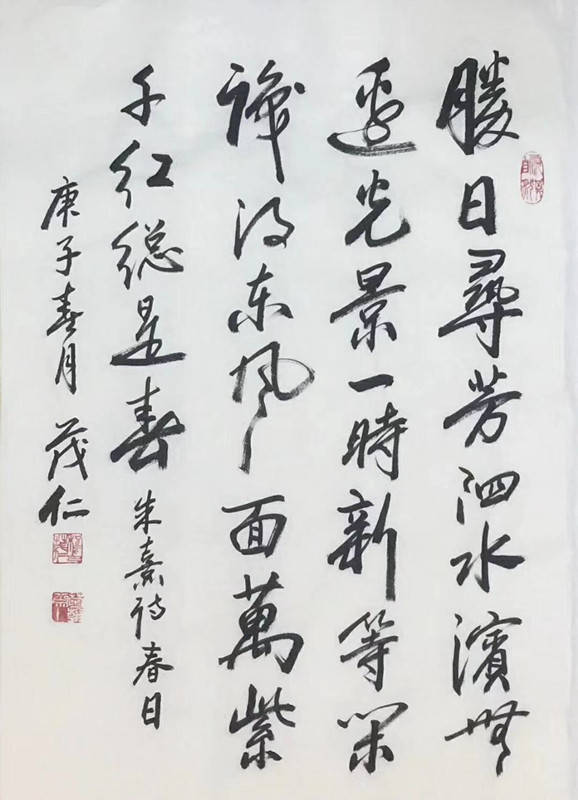 勝日尋芳泗水濱無
邊光景一時新等閑
識得東風面萬紫
千紅總是春 朱熹詩春日
庚子春月 茂仁